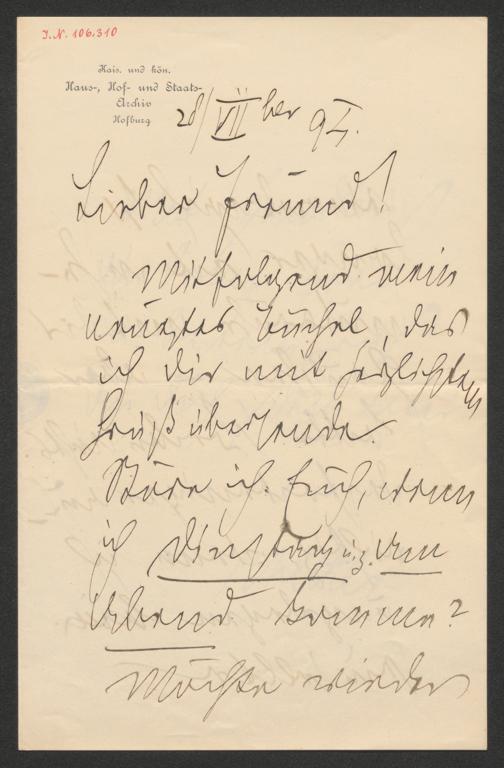 I.N. 106.310
Kais. und kön.
Haus-, Hof- und Staats-
Archiv
Hofburg
28/VII ber 95.
Lieber Freund!
Mitfolgend mein
neuestes Büchel, das
ich dir mit herzlichstem
Gruß übersende.
Störe ich Euch, wenn
ich Dinstag u. z. am
Abend komme?
Möchte wieder